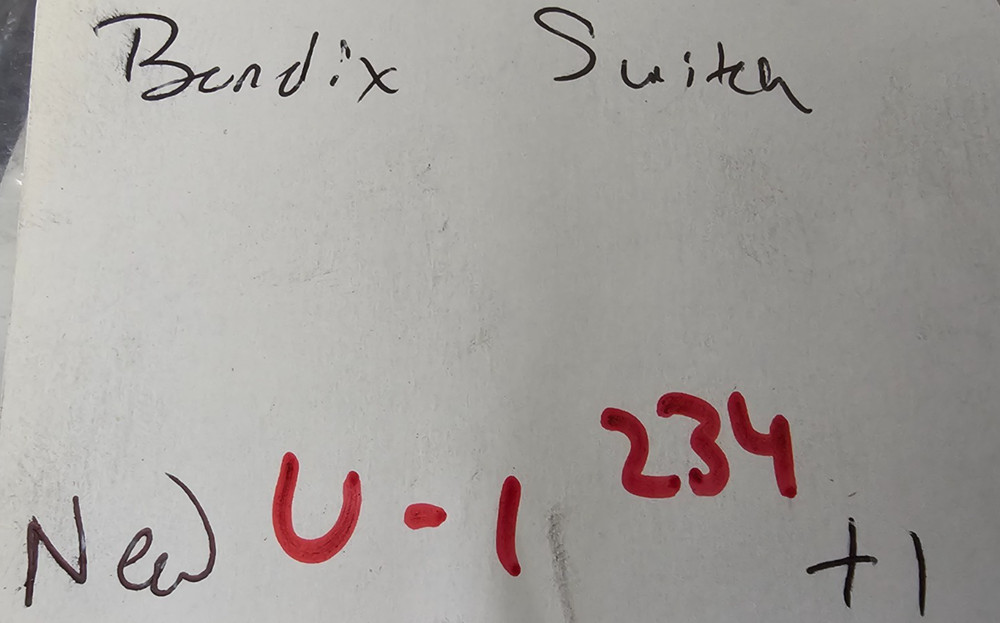 Bendix Switch
New U-1 234 +1